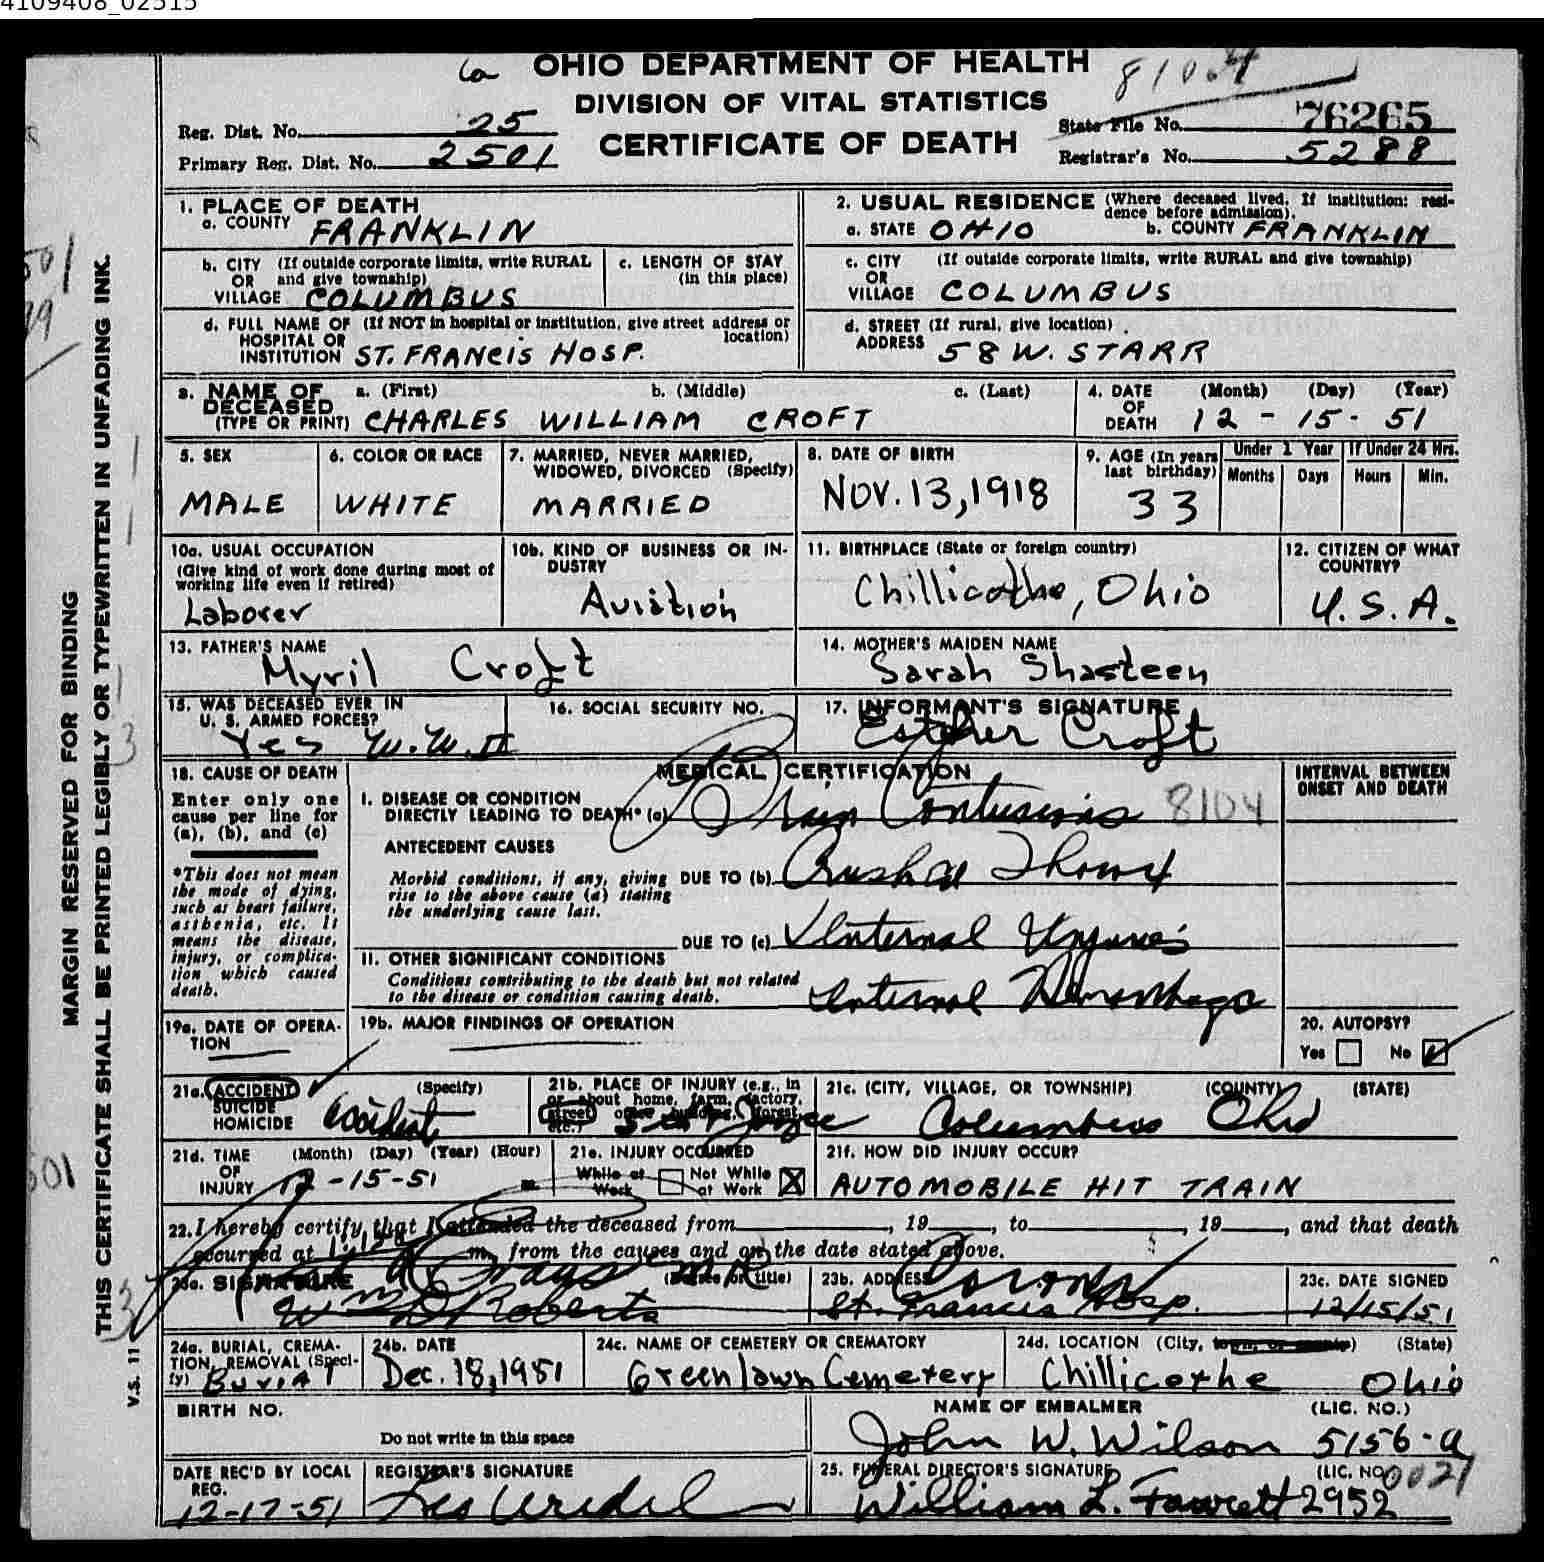 4109408_02515
OHIO DEPARTMENT OF HEALTH 8104
DIVISION OF VITAL STATISTICS
CERTIFICATE OF DEATH
Reg. Dist. No. 25
Primary Reg. Dist. No. 2501
State File No. 76265
Registrar's No. 5288
MARGIN RESERVED FOR BINDING
THIS CERTIFICATE SHALL BE PRINTED LEGIBLY OR TYPEWRITTEN IN UNFADING INK.
V.S. 11
1. PLACE OF DEATH
a. COUNTY FRANKLIN
2. USUAL RESIDENCE (Where deceased lived. If institution: resi-
dence before admission).
a. STATE OHIO b. COUNTY FRANKLIN
b. CITY (If outside corporate limits, write RURAL
OR and give township)
VILLAGE COLUMBUS
c. LENGTH OF STAY
(in this place)
c. CITY (If outside corporate limits, write RURAL and give township)
OR
VILLAGE COLUMBUS
d. FULL NAME OF (If NOT in hospital or institution, give street address or
HOSPITAL OR location)
INSTITUTION ST. FRANCIS HOSP.
d. STREET (If rural, give location)
ADDRESS 58 W. STARR
3. NAME OF a. (First) b. (Middle) c. (Last)
DECEASED
(TYPE OR PRINT) CHARLES WILLIAM CROFT
4. DATE (Month) (Day) (Year)
OF
DEATH 12 - 15 - 51
5. SEX
MALE
6. COLOR OR RACE
WHITE
7. MARRIED, NEVER MARRIED,
WIDOWED, DIVORCED (Specify)
MARRIED
8. DATE OF BIRTH
NOV. 13, 1918
9. AGE (In years
last birthday)
33
Under 1 Year
Months Days
If Under 24 Hrs.
Hours Min.
10a. USUAL OCCUPATION
(Give kind of work done during most of
working life even if retired)
Laborer
10b. KIND OF BUSINESS OR IN-
DUSTRY
Aviation
11. BIRTHPLACE (State or foreign country)
Chillicothe, Ohio
12. CITIZEN OF WHAT
COUNTRY?
U.S.A.
13. FATHER'S NAME
Myril Croft
14. MOTHER'S MAIDEN NAME
Sarah Shasteen
15. WAS DECEASED EVER IN
U. S. ARMED FORCES?
Yes W.W.II
16. SOCIAL SECURITY NO.
17. INFORMANT'S SIGNATURE
Esther Croft
18. CAUSE OF DEATH
Enter only one
cause per line for
(a), (b), and (c)
*This does not mean
the mode of dying,
such as heart failure,
asthenia, etc. It
means the disease,
injury, or complica-
tion which caused
death.
MEDICAL CERTIFICATION
INTERVAL BETWEEN
ONSET AND DEATH
I. DISEASE OR CONDITION
DIRECTLY LEADING TO DEATH* (a) Brain Contusions 8104
ANTECEDENT CAUSES
Morbid conditions, if any, giving
rise to the above cause (a) stating
the underlying cause last.
DUE TO (b) Crushed
DUE TO (c) Internal Injuries
II. OTHER SIGNIFICANT CONDITIONS
Conditions contributing to the death but not related
to the disease or condition causing death.
Internal Hemorrhage
19a. DATE OF OPERA-
TION
19b. MAJOR FINDINGS OF OPERATION
20. AUTOPSY?
Yes No
21a. ACCIDENT (Specify)
SUICIDE
HOMICIDE accident
21b. PLACE OF INJURY (e.g., in
or about home, farm, factory,
street, office building, forest,
etc.)
21c. (CITY, VILLAGE, OR TOWNSHIP) (COUNTY) (STATE)
Columbus Ohio
21d. TIME (Month) (Day) (Year) (Hour)
OF
INJURY 12-15-51 m.
21e. INJURY OCCURRED
While at Work Not While at Work X
21f. HOW DID INJURY OCCUR?
AUTOMOBILE HIT TRAIN
22. I hereby certify that I attended the deceased from , 19 , to , 19 , and that death
occurred at m., from the causes and on the date stated above.
23a. SIGNATURE (Degree or title)
Wm D Roberts
23b. ADDRESS Coroner
St. Francis Hosp.
23c. DATE SIGNED
12/15/51
24a. BURIAL, CREMA-
TION, REMOVAL (Speci-
fy) Burial
24b. DATE
Dec. 18, 1951
24c. NAME OF CEMETERY OR CREMATORY
Greenlawn Cemetery
24d. LOCATION (City, town, or county) (State)
Chillicothe Ohio
BIRTH NO.
Do not write in this space
NAME OF EMBALMER (LIC. NO.)
John W. Wilson 5156-a
DATE REC'D BY LOCAL
REG.
12-17-51
REGISTRAR'S SIGNATURE
25. FUNERAL DIRECTOR'S SIGNATURE (LIC. NO.) 0021
William L. Fawcett 2952